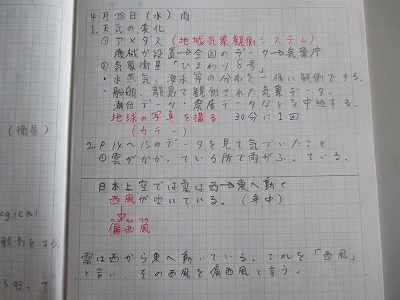 4月28日(水) 雨
1. 天気の変化
① アメダス (地域気象観測システム)
機械が設置→全国のデータ→気象庁
② 気象衛星「ひまわり8号」
・水蒸気、海氷等の分布を一様に観測できる。
・船舶、離島で観測された気象データ、
潮位データ・震度データなどを中継する。
地球の写真を撮る 30分に1回
(カラー)
2. P14〜15のデータを見て気づいたこと
① 雲がかかっている所で雨がふっている。
日本上空では雲は西→東へ動く
西風が吹いている。(年中)
偏西風
雲は西から東へ動いている。これを「西風」
と言い、その西風を偏西風と言う。
(衛星)
ological
観測をする